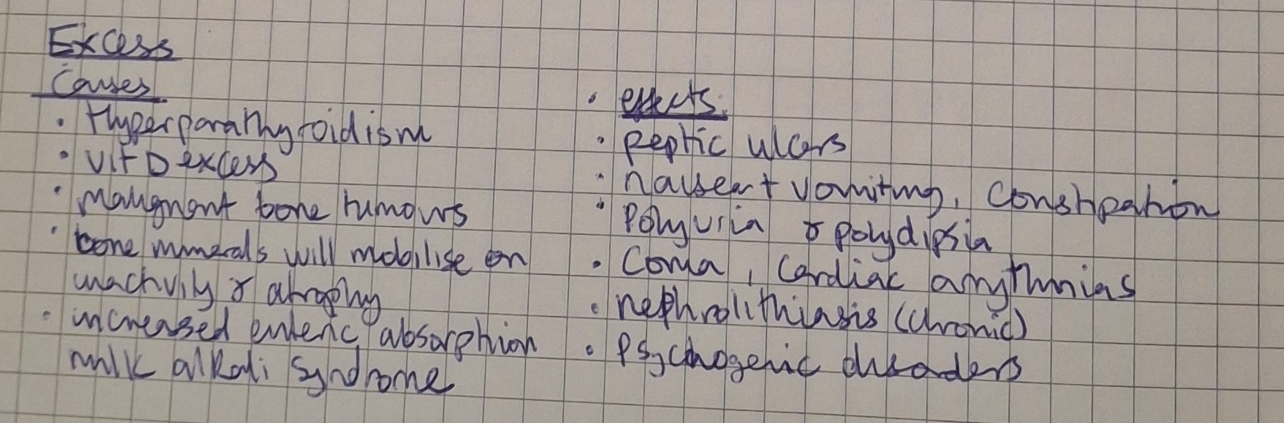 Excess
Causes
• Hyperparathyroidism
• Vit D excess
• Malignant bone tumours
• bone minerals will mobilise on
inactivity & atrophy
• increased enteric absorption
milk alkali syndrome
• effects:
• peptic ulcers
• nausea + vomiting, constipation
• Polyuria & polydipsia
• Coma, cardiac arrythmias
• nephrolithiasis (chronic)
• Psychogenic disorders